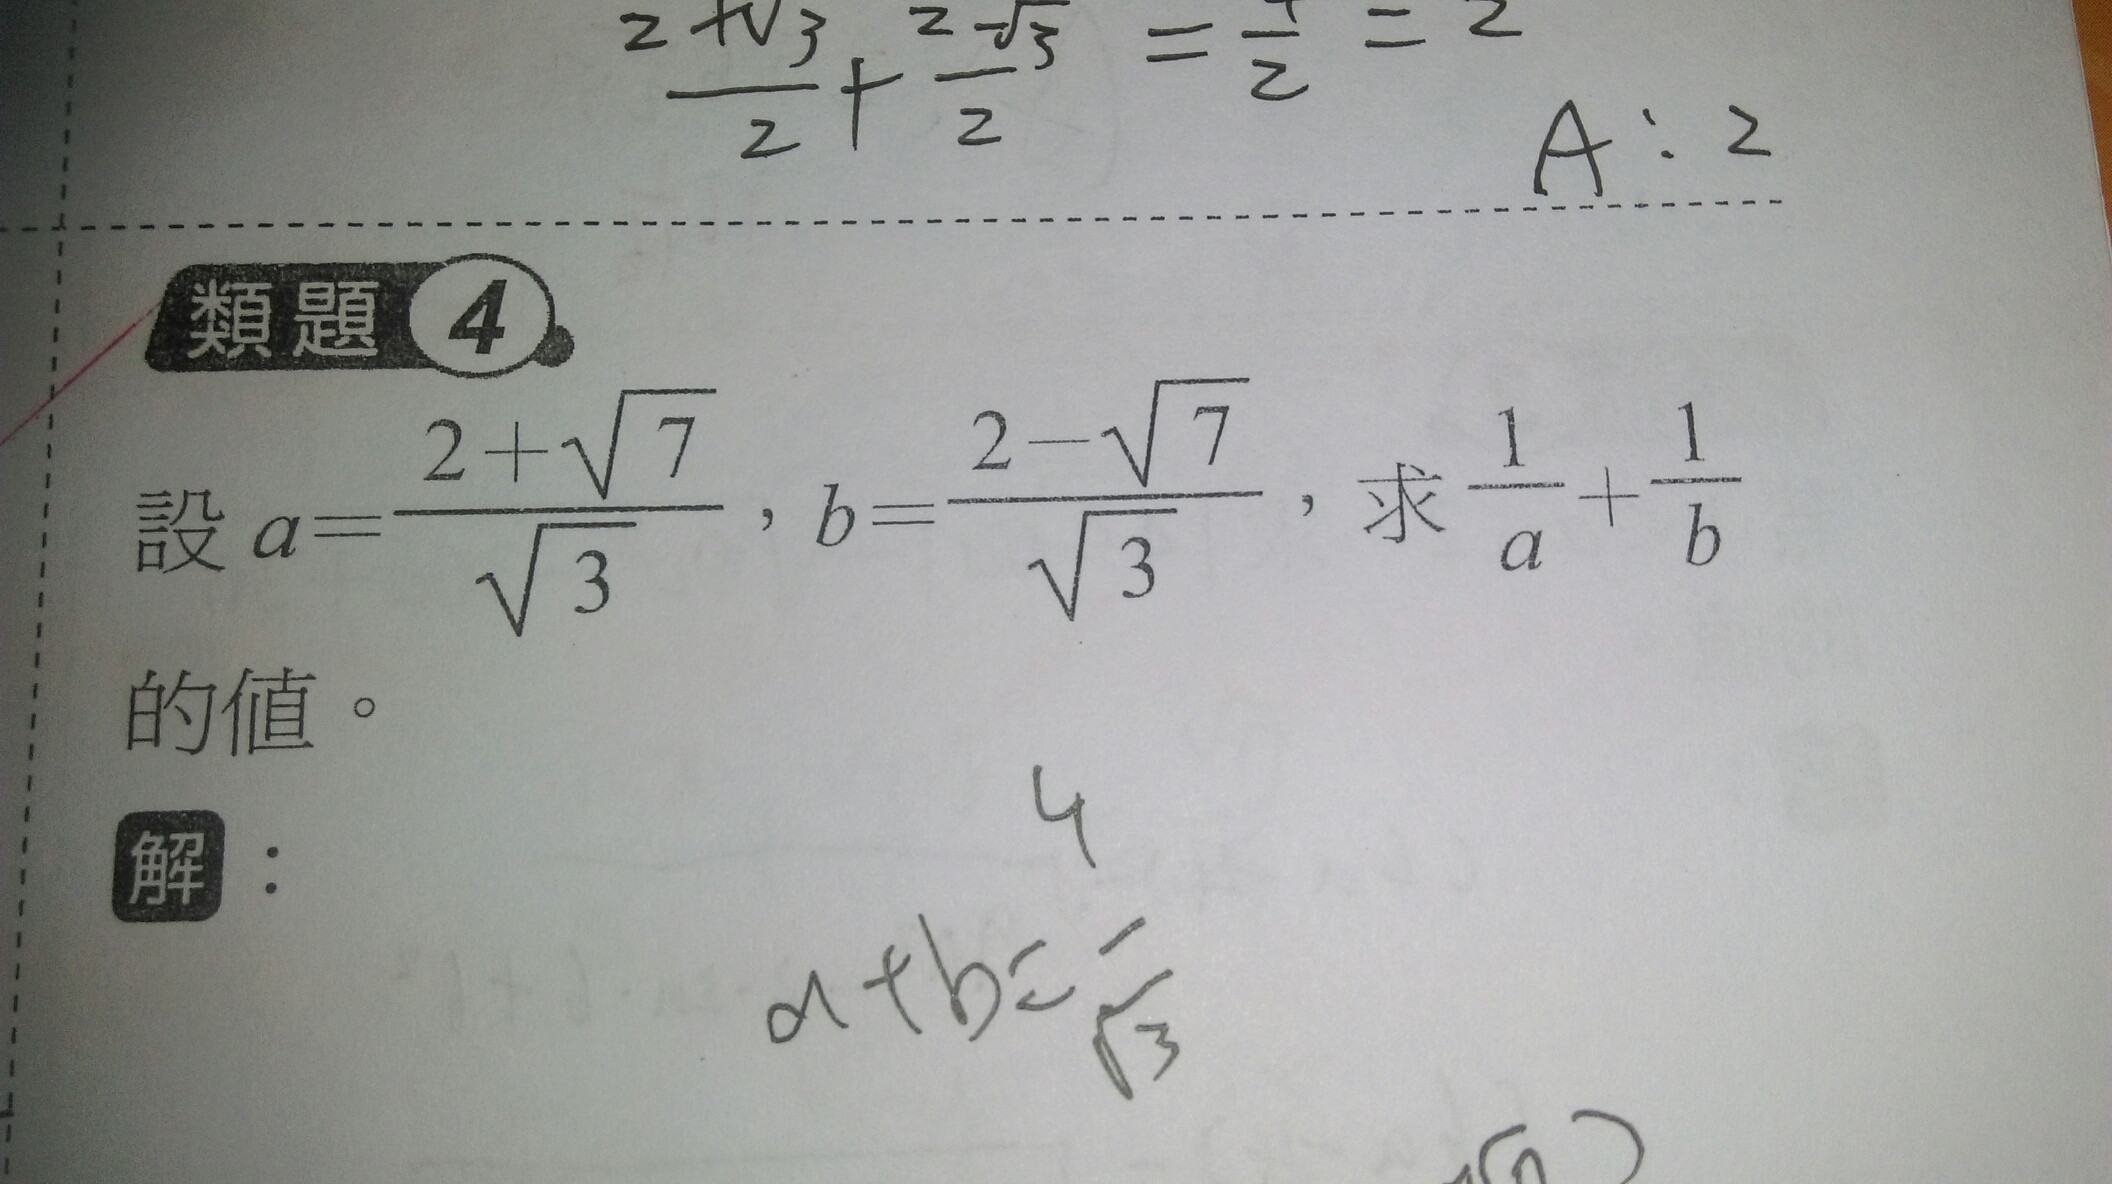 2+√3/2 + 2-√3/2 = 4/2 = 2
A:2
類題4
設 a=2+√7/√3，b=2-√7/√3，求1/a+1/b
的值。
解：
a+b=4/√3